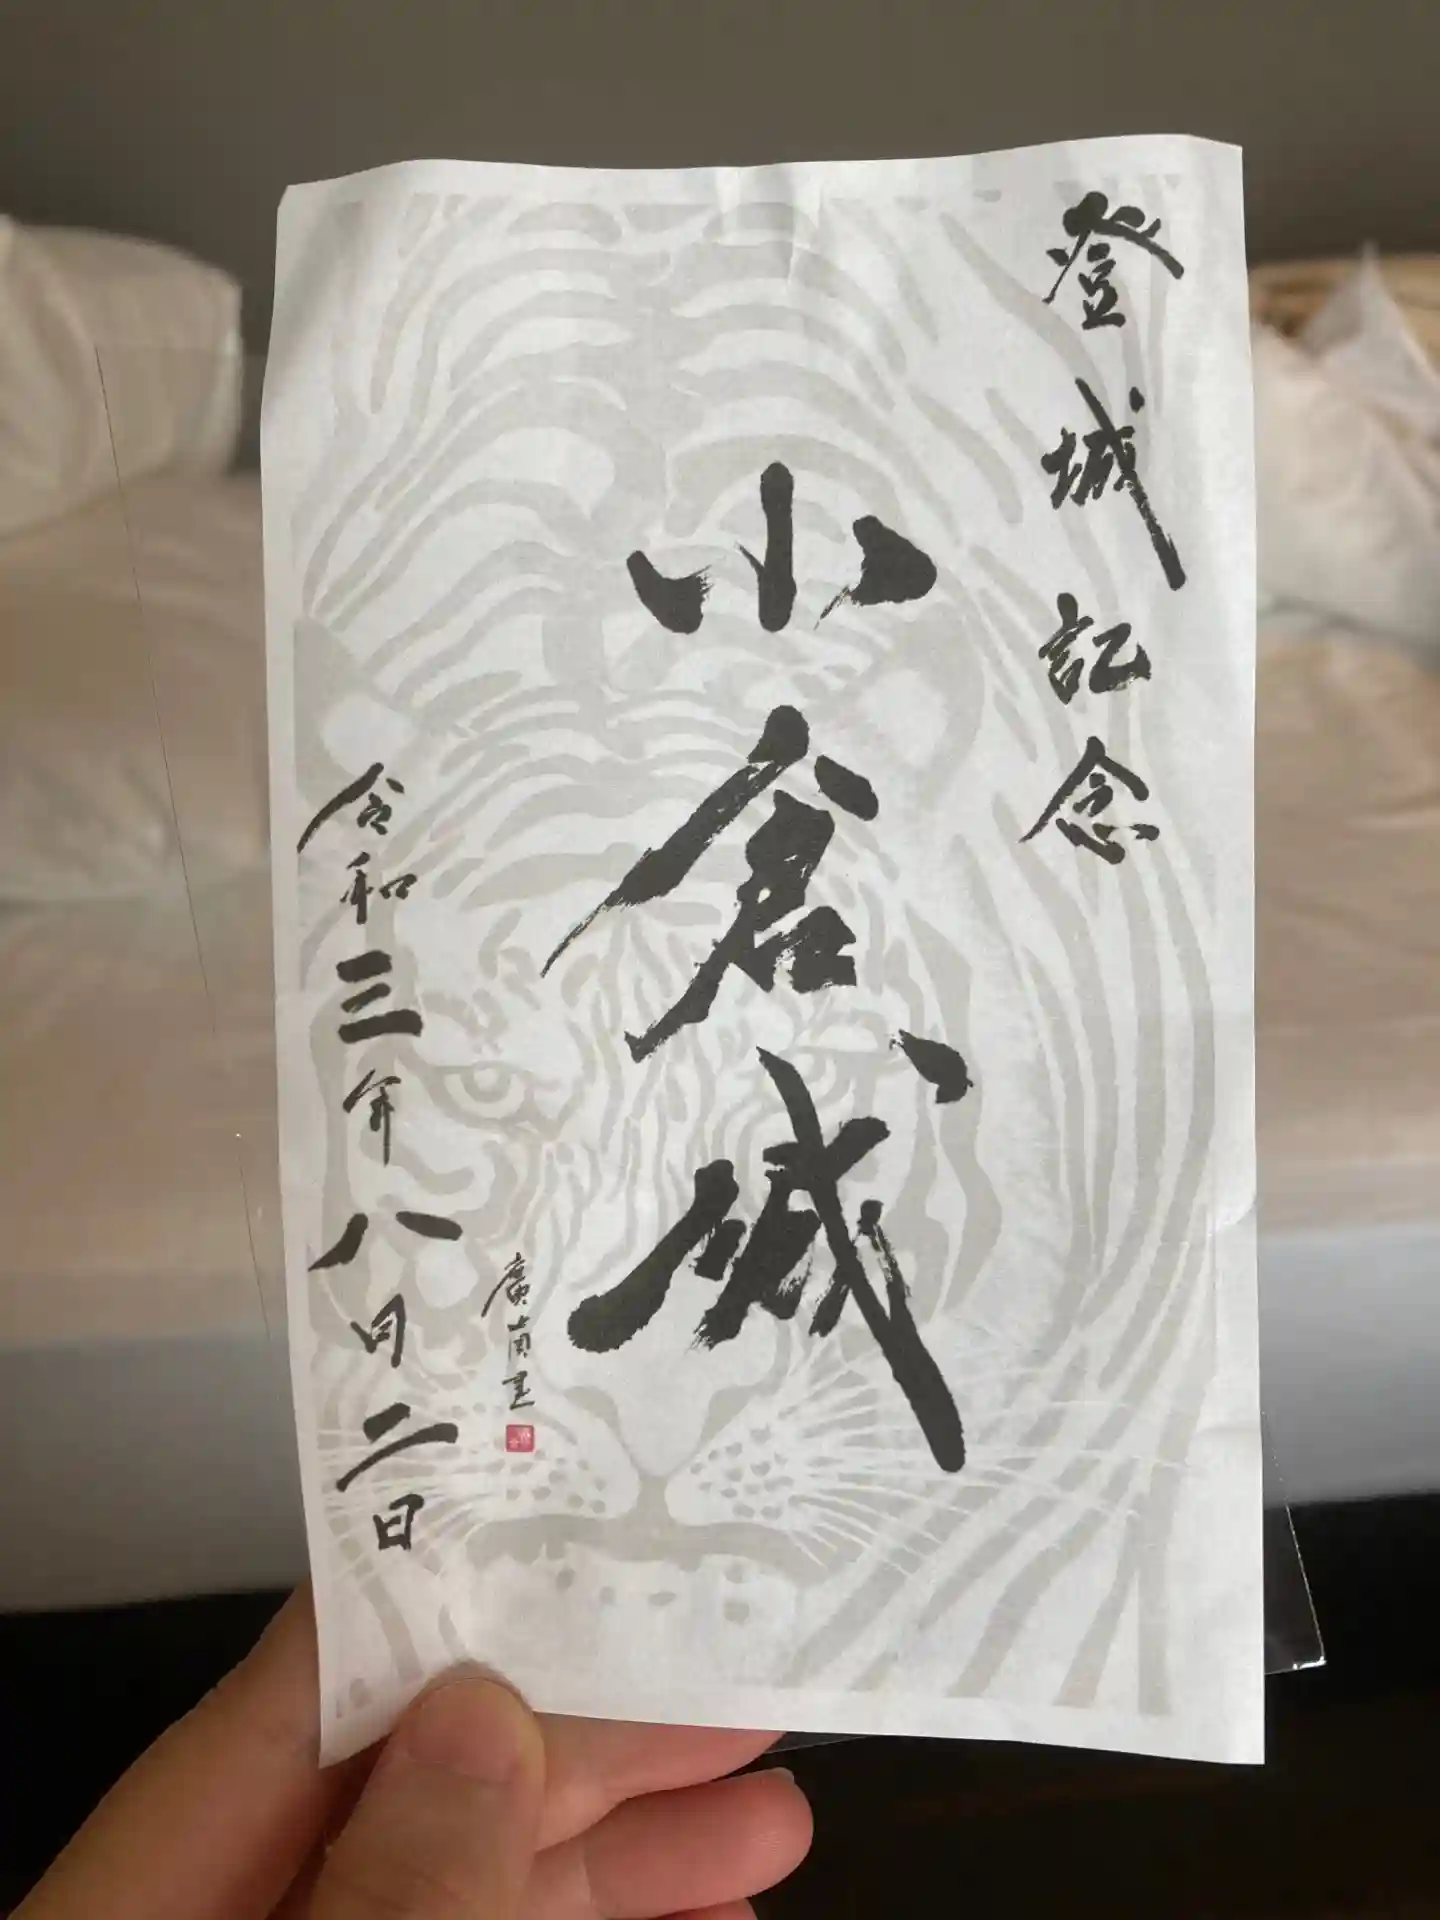 登城記念
小倉城
令和三年八月二日